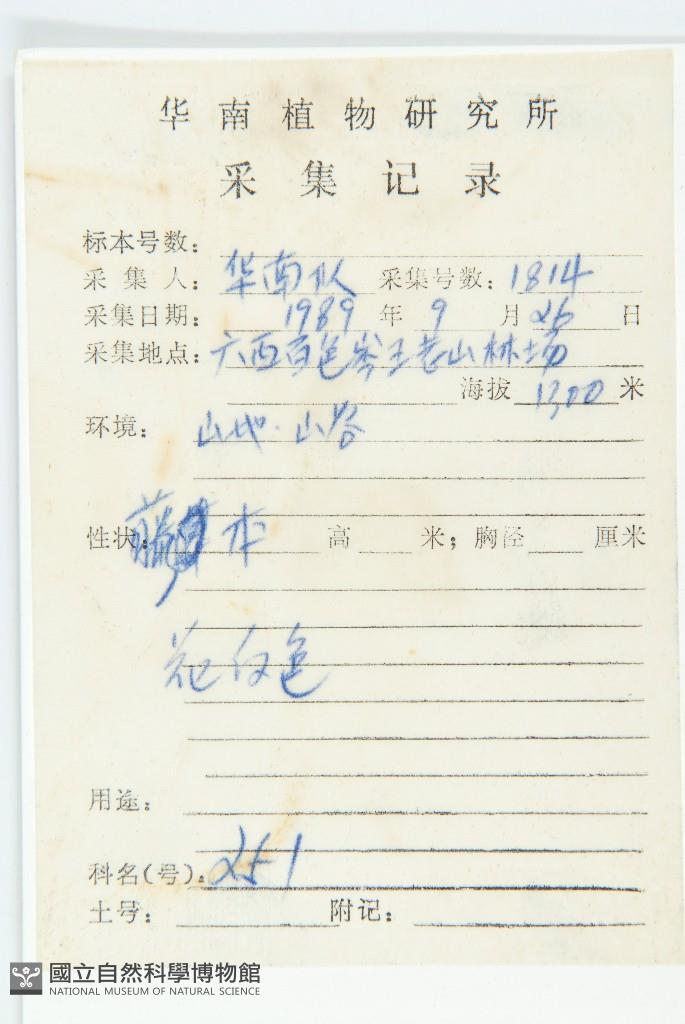 华南植物研究所
采集记录
标本号数：
采集人：华南队 采集号数：1814
采集日期：1989年9月26日
采集地点：广西百色岑王老山林场
海拔 1300 米
环境：山地．山谷
性状：藤本 高 米；胸径 厘米
花白色
用途：
科名(号)：251
土号： 附记：
國立自然科學博物館
NATIONAL MUSEUM OF NATURAL SCIENCE